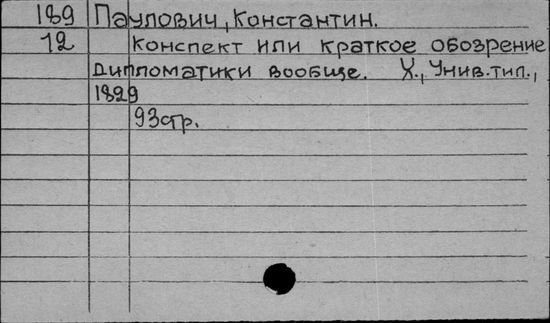 189 Паулович, Константин.
12 Конспект или краткое обозрение
дипломатики вообще. Х., Унив. тип.,
1829
93 стр.